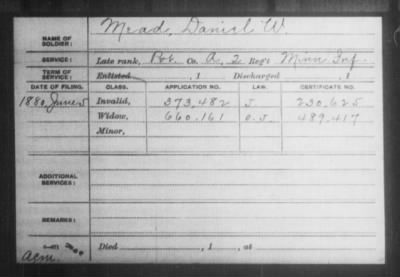 NAME OF SOLDIER: Mead, Daniel W.
SERVICE: Late rank, Pvt. Co. A, 2 Reg't Minn Inf.
TERM OF SERVICE: Enlisted , 1 Discharged , 1
DATE OF FILING. CLASS. APPLICATION NO. LAW. CERTIFICATE NO.
1880, June 5 Invalid, 373,482 230,625
Widow, 660,161 489,417
Minor,
ADDITIONAL SERVICES:
REMARKS:
Died , 1 , at